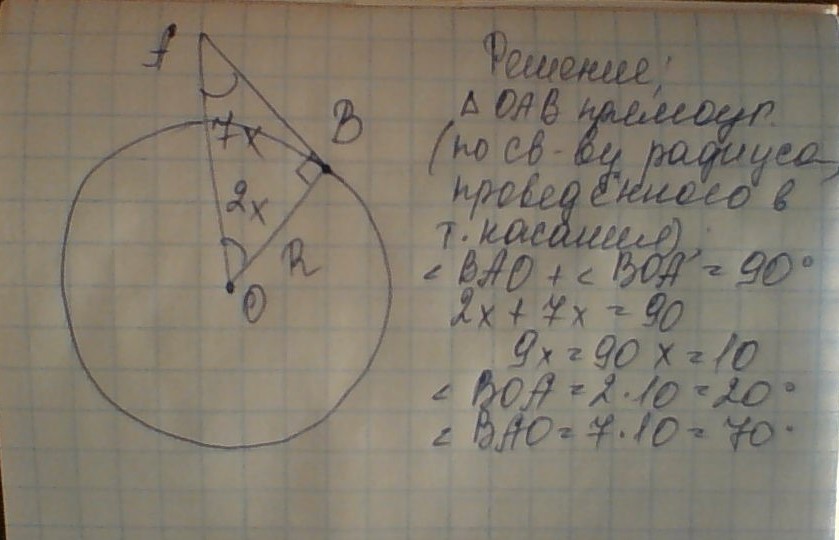 A
7x
B
2x
R
O
Решение:
Δ OAB прямоуг.
(по св-ву радиуса,
проведённого в
т. касания)
∠ BAO + ∠ BOA = 90°
2x + 7x = 90
9x = 90 x = 10
∠ BOA = 2·10 = 20°
∠ BAO = 7·10 = 70°